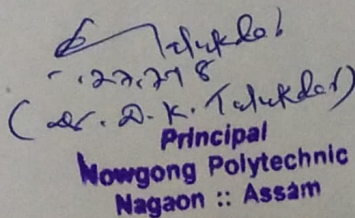 Talukdar
(Dr. D. K. Talukdar)
Principal
Nowgong Polytechnic
Nagaon :: Assam